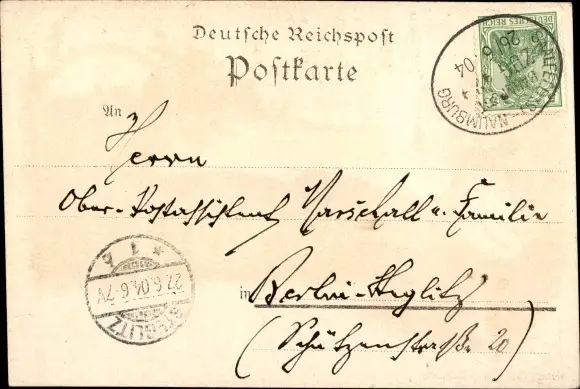 Deutsche Reichspost
Postkarte
An
Herrn
Ober-Postassistent Marschall u. Familie
in Berlin-Steglitz
(Schützenstraße 20)
NAUMBURG
26 6 04
ZUG
DEUTSCHES REICH
STEGLITZ
* 1 *
27.6.04.6-7V